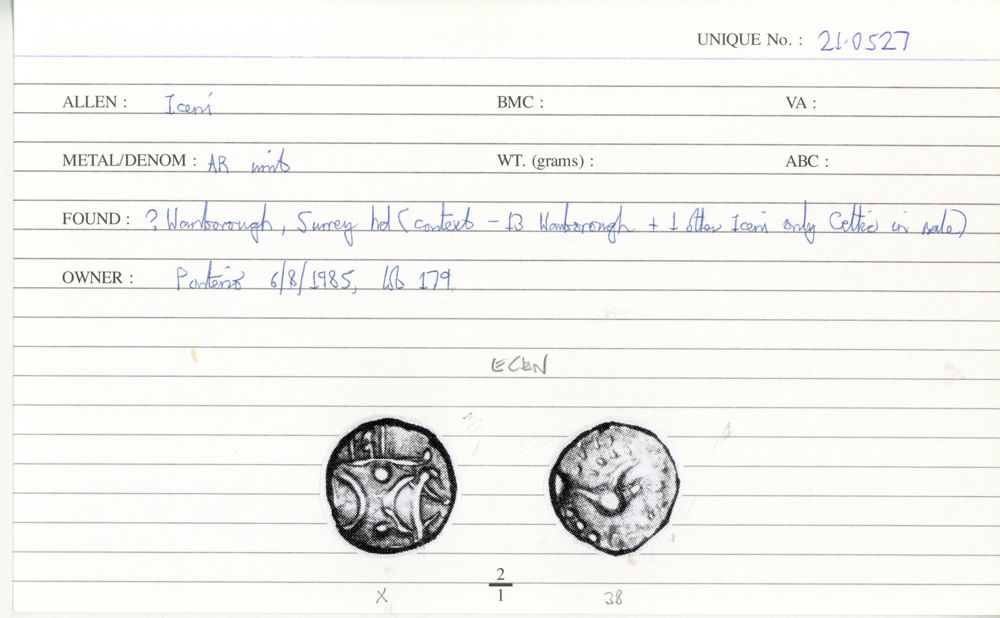 UNIQUE No. : 21.0527
ALLEN : Iceni BMC : VA :
METAL/DENOM : AR unit WT. (grams) : ABC :
FOUND : ? Wanborough, Surrey hd (context - 13 Wanborough + 1 other Iceni only Celtic in sale)
OWNER : 6/8/1985, lot 179
ECEN
2
1
X 38